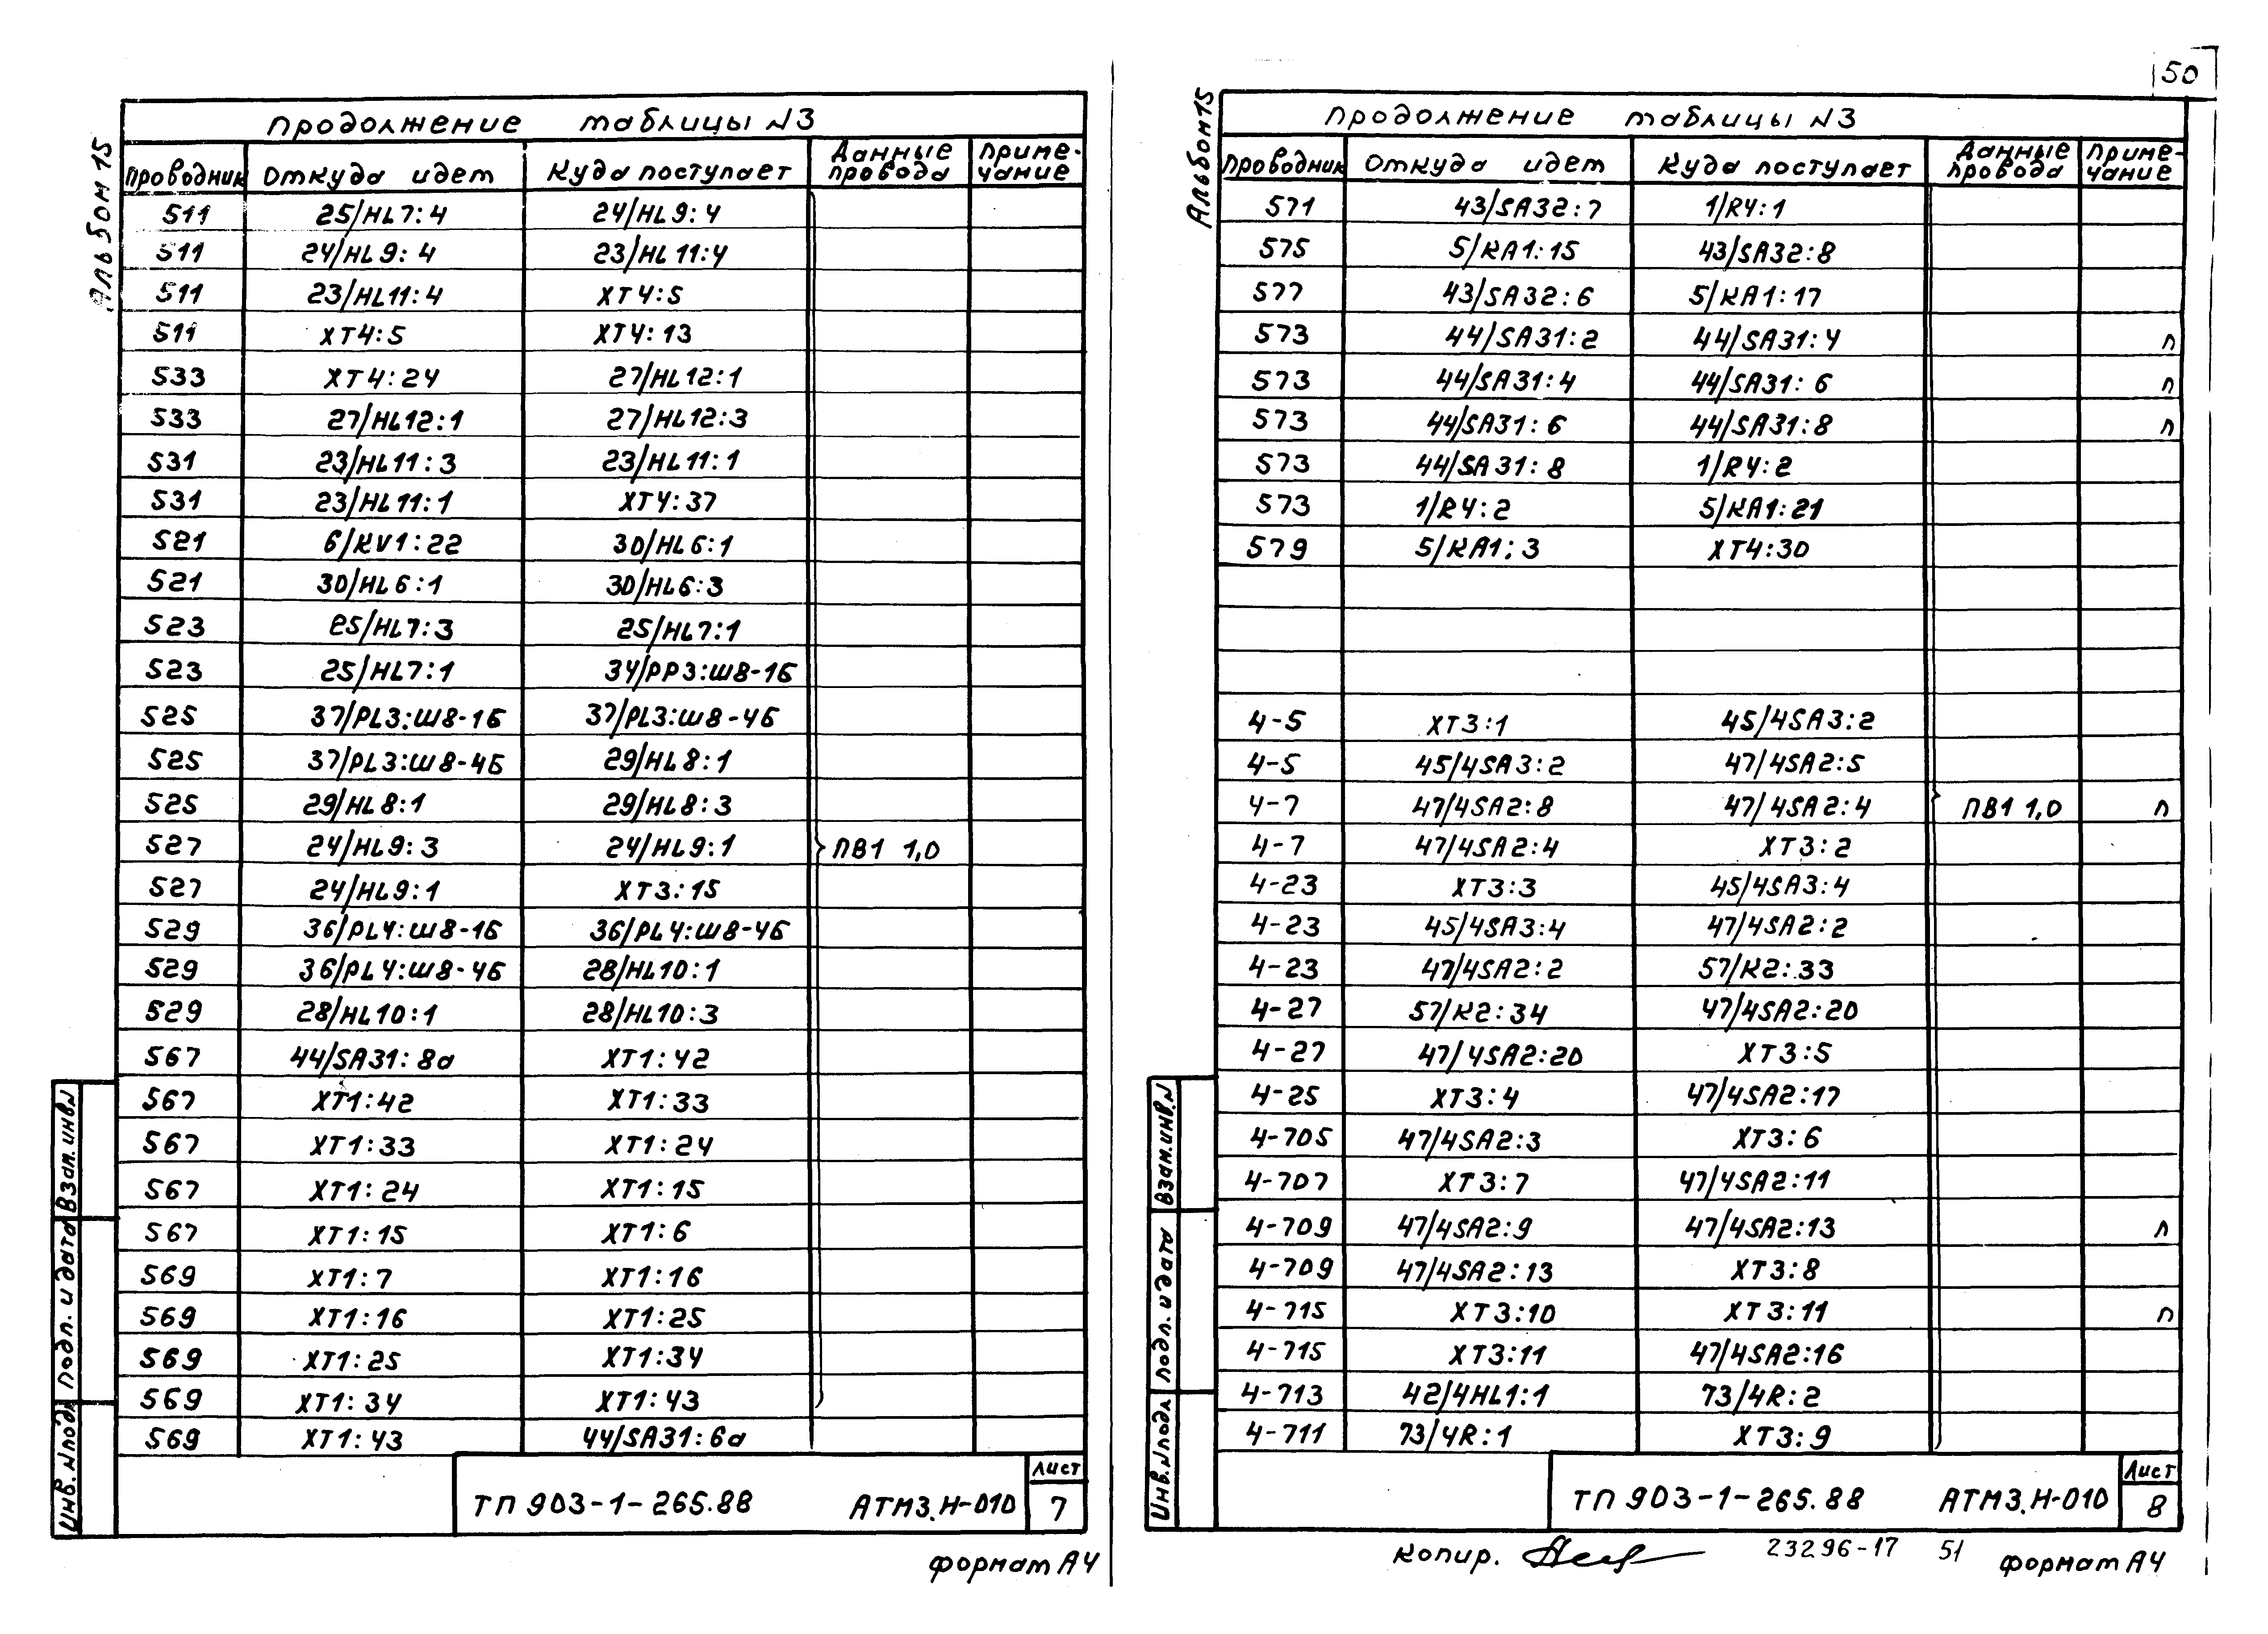 50
Альбом 15
Продолжение таблицы N3
Проводник Откуда идет Куда поступает Данные провода Приме-чание
511 25/HL7:4 24/HL9:4
511 24/HL9:4 23/HL11:4
511 23/HL11:4 XT4:5
511 XT4:5 XT4:13
533 XT4:24 27/HL12:1
533 27/HL12:1 27/HL12:3
531 23/HL11:3 23/HL11:1
531 23/HL11:1 XT4:37
521 6/KV1:22 30/HL6:1
521 30/HL6:1 30/HL6:3
523 25/HL7:3 25/HL7:1
523 25/HL7:1 34/PP3:Ш8-1Б
525 37/PL3:Ш8-1Б 37/PL3:Ш8-4Б
525 37/PL3:Ш8-4Б 29/HL8:1
525 29/HL8:1 29/HL8:3
527 24/HL9:3 24/HL9:1 ПВ1 1,0
527 24/HL9:1 XT3:15
529 36/PL4:Ш8-1Б 36/PL4:Ш8-4Б
529 36/PL4:Ш8-4Б 28/HL10:1
529 28/HL10:1 28/HL10:3
567 44/SA31:8а XT1:42
567 XT1:42 XT1:33
567 XT1:33 XT1:24
567 XT1:24 XT1:15
567 XT1:15 XT1:6
569 XT1:7 XT1:16
569 XT1:16 XT1:25
569 XT1:25 XT1:34
569 XT1:34 XT1:43
569 XT1:43 44/SA31:6а
Взам. инв.N
Подп. и дата
Инв. Nподл
ТП 903-1-265.88 АТМ3.Н-010
Лист
7
формат А4
Альбом 15
Продолжение таблицы N3
Проводник Откуда идет Куда поступает Данные провода Приме-чание
571 43/SA32:7 1/R4:1
575 5/KA1:15 43/SA32:8
577 43/SA32:6 5/KA1:17
573 44/SA31:2 44/SA31:4 п
573 44/SA31:4 44/SA31:6 п
573 44/SA31:6 44/SA31:8 п
573 44/SA31:8 1/R4:2
573 1/R4:2 5/KA1:21
579 5/KA1:3 XT4:30
4-5 XT3:1 45/4SA3:2
4-5 45/4SA3:2 47/4SA2:5
4-7 47/4SA2:8 47/4SA2:4 ПВ1 1,0 п
4-7 47/4SA2:4 XT3:2
4-23 XT3:3 45/4SA3:4
4-23 45/4SA3:4 47/4SA2:2
4-23 47/4SA2:2 57/K2:33
4-27 57/K2:34 47/4SA2:20
4-27 47/4SA2:20 XT3:5
4-25 XT3:4 47/4SA2:17
4-705 47/4SA2:3 XT3:6
4-707 XT3:7 47/4SA2:11
4-709 47/4SA2:9 47/4SA2:13 п
4-709 47/4SA2:13 XT3:8
4-715 XT3:10 XT3:11 п
4-715 XT3:11 47/4SA2:16
4-713 42/4HL1:1 73/4R:2
4-711 73/4R:1 XT3:9
Взам.инв.N
Подп. и дата
Инв. Nподл
ТП 903-1-265.88 АТМ3.Н-010
Лист
8
Копир. 23296-17 51 формат А4